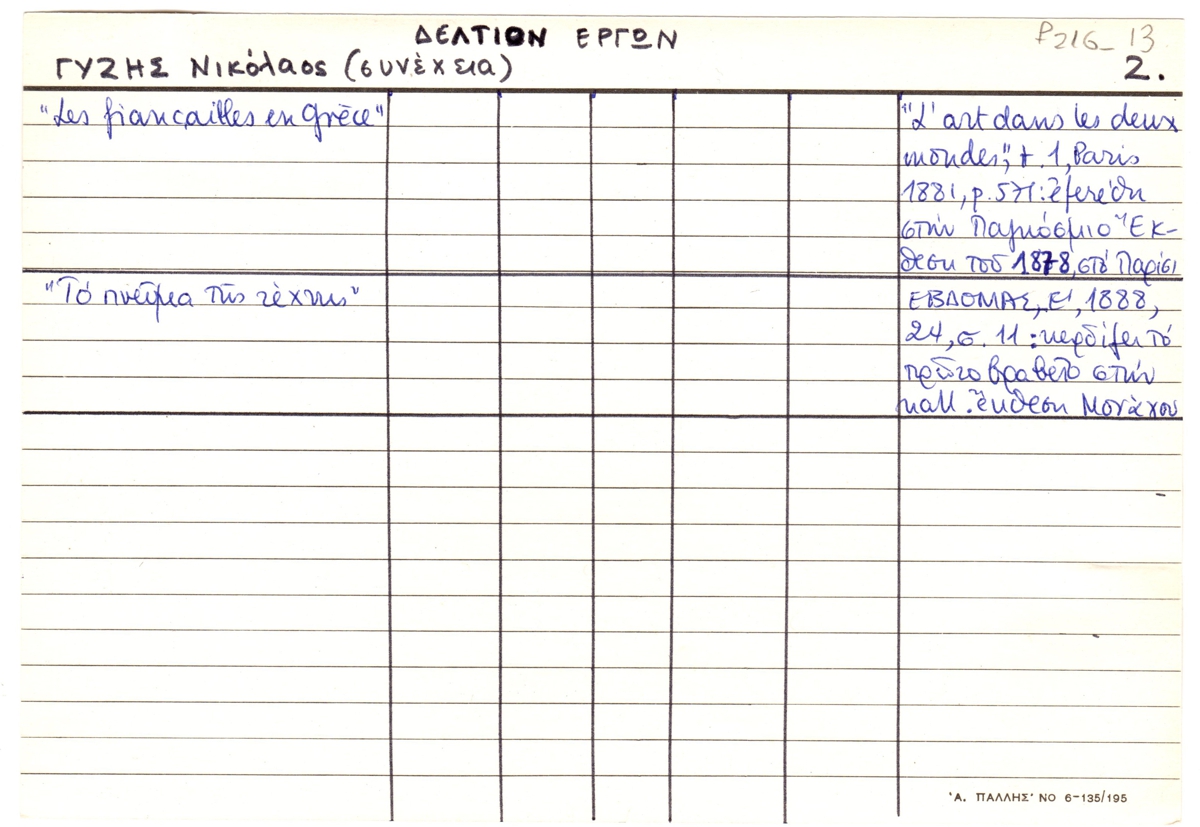 ΔΕΛΤΙΟΝ ΕΡΓΩΝ
P216_13
ΓΥΖΗΣ Νικόλαος (συνέχεια)
2.
"Les fiançailles en Grèce"
"L'art dans les deux
mondes", t. 1, Paris
1881, p. 571: ἐξετέθη
στήν Παγκόσμιο Ἔκ-
θεση τοῦ 1878, στό Παρίσι
"Τό πνεῦμα τῆς τέχνης"
ΕΒΔΟΜΑΣ, Ε', 1888,
24, σ. 11: κερδίζει τό
πρῶτο βραβεῖο στήν
καλλ. ἔκθεση Μονάχου
'Α. ΠΑΛΛΗΣ' ΝΟ 6-135/195